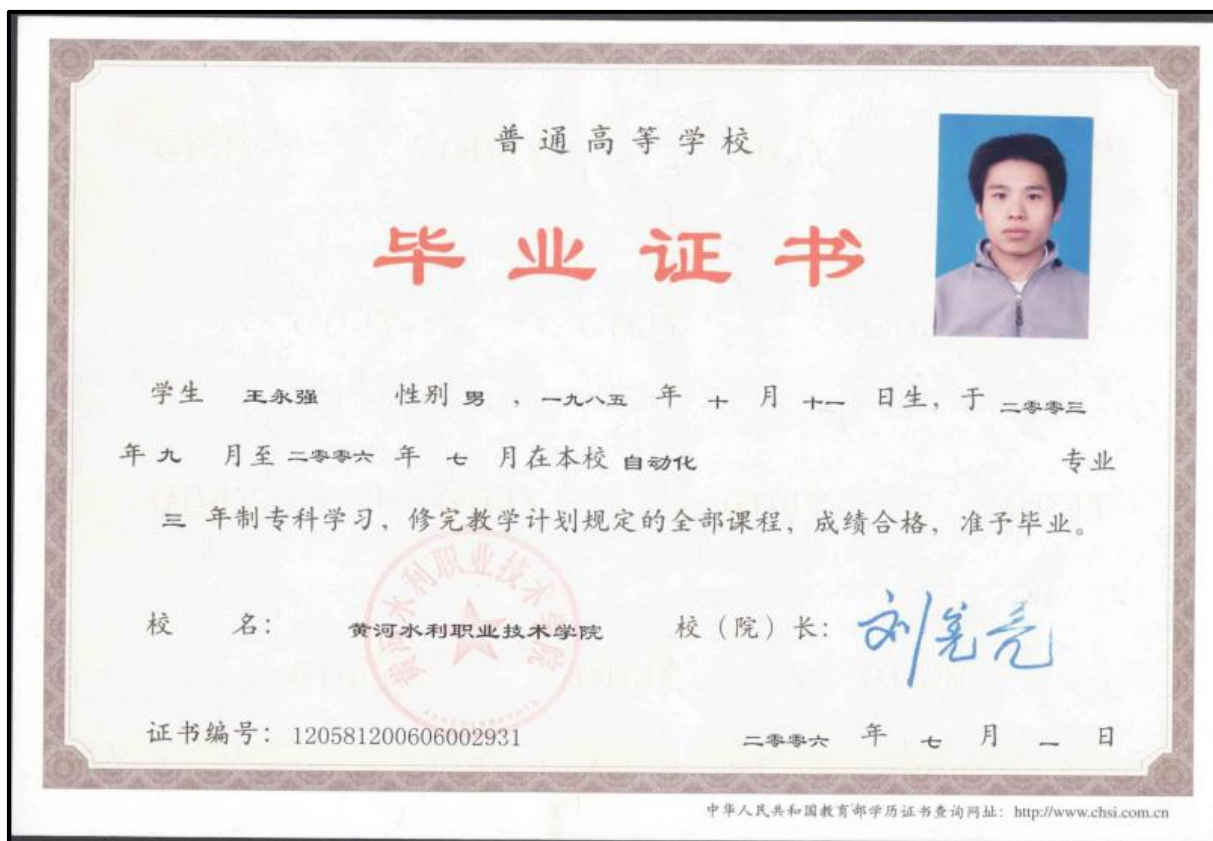 普通高等学校
毕业证书
学生 王永强 性别 男 ，一九八五 年 十 月 十一 日生，于 二零零三
年 九 月至 二零零六 年 七 月在本校 自动化 专业
三 年制专科学习，修完教学计划规定的全部课程，成绩合格，准予毕业。
校 名： 黄河水利职业技术学院 校（院）长：
黄河水利职业技术学院
证书编号：120581200606002931 二零零六 年 七 月 一 日
中华人民共和国教育部学历证书查询网址：http://www.chsi.com.cn